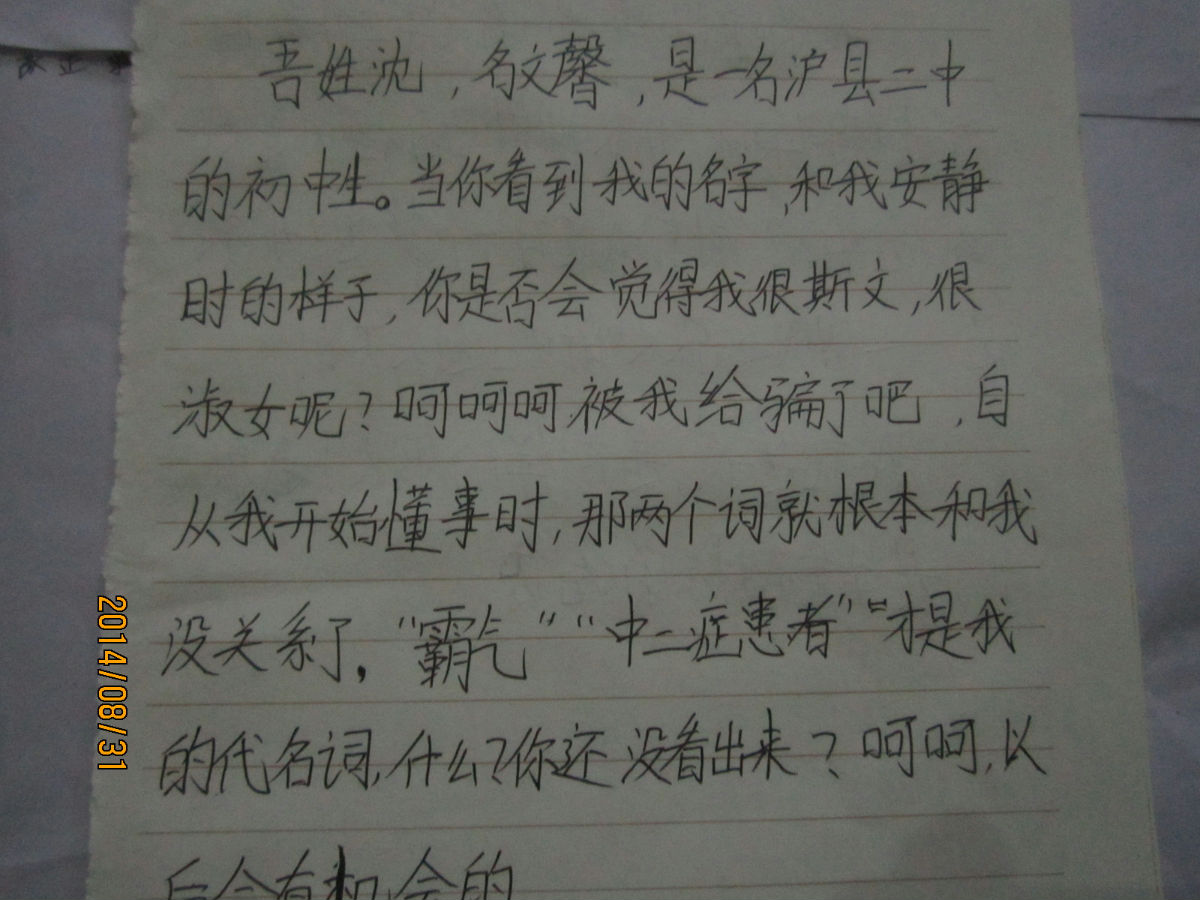 吾姓沈,名文馨,是一名沪县二中
的初中生。当你看到我的名字,和我安静
时的样子,你是否会觉得我很斯文,很
淑女呢?呵呵呵.被我给骗了吧,自
从我开始懂事时,那两个词就根本和我
没关系了,“霸气”“中二症患者”“才是我
的代名词,什么?你还没看出来?呵呵,以
后会有机会的
2014/08/31